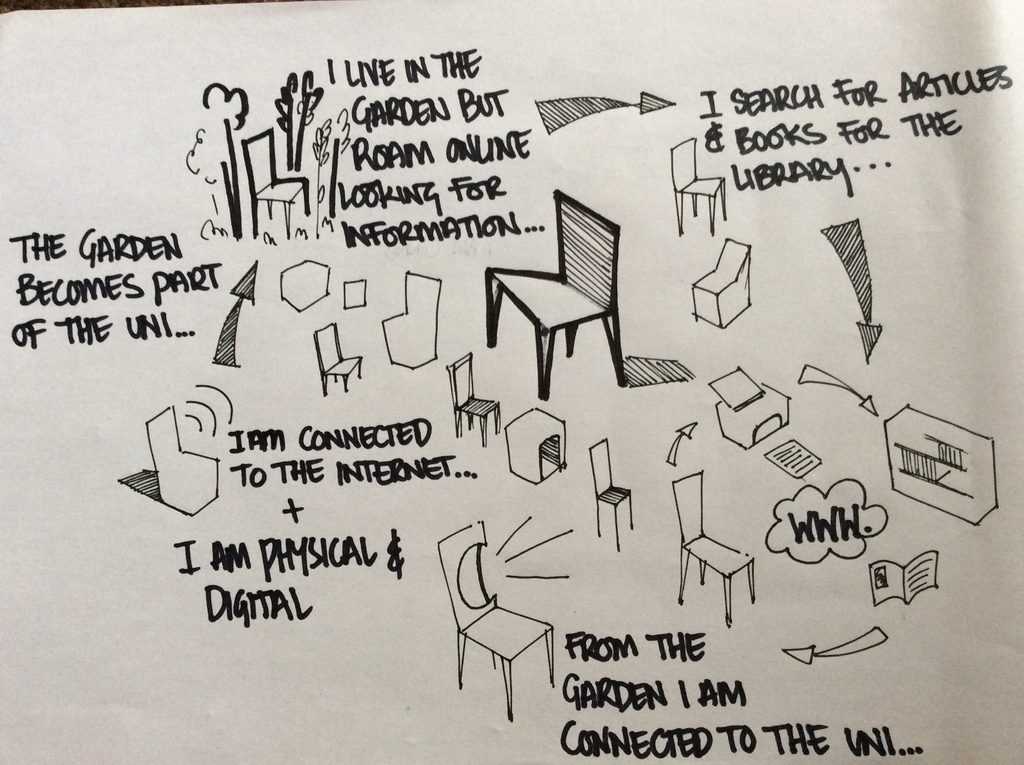 I LIVE IN THE
GARDEN BUT
ROAM ONLINE
LOOKING FOR
INFORMATION...
I SEARCH FOR ARTICLES
& BOOKS FOR THE
LIBRARY...
WWW.
FROM THE
GARDEN I AM
CONNECTED TO THE UNI...
I AM CONNECTED
TO THE INTERNET...
+
I AM PHYSICAL &
DIGITAL
THE GARDEN
BECOMES PART
OF THE UNI...